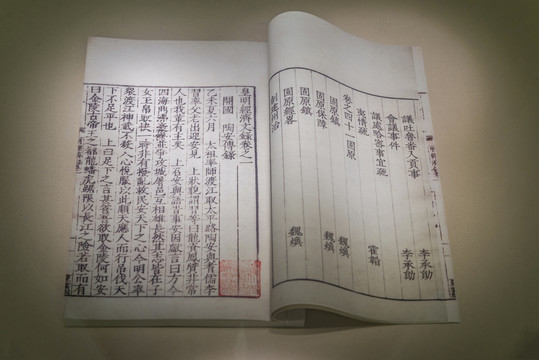 議吐魯番入貢事 李承勛
會議事件 李承勛
議處哈密事宜疏 霍韜
夷情疏
卷之四十一 固原
固原鎮 魏煥
固原保障 魏煥
固原鎮
固原經略 魏煥
創建州治
皇明經濟文錄卷之一
開國 陶安傳錄
乙未夏六月 太祖率師渡江取太平路陶安與耆儒李
習率父老出迎安見 上狀貌謂習等曰龍姿鳳質非常
人也我輩有主矣 上召安與語時事安因獻言曰方今
四海鼎沸豪傑並爭攻城屠邑互相雄長然其志皆在子
女玉帛取快一時非有撥亂救民安天下之心今明公率
衆渡江神武不殺人心悅服以此順天應人而行弔伐天
下不足平也 上曰足下之言甚善吾欲取金陵何如安
曰金陵古帝王之都龍蟠虎踞限以長江之險若取而有